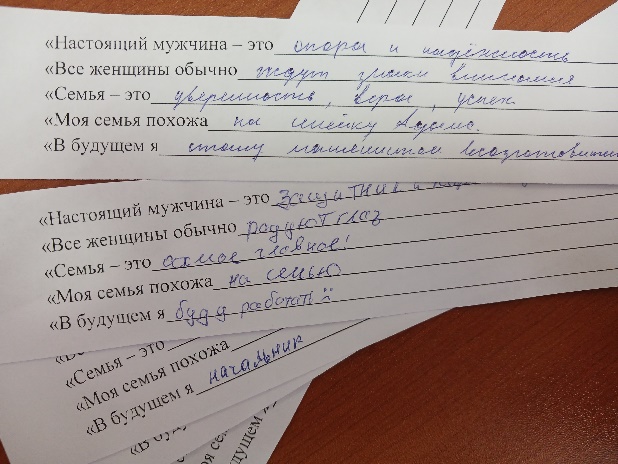 «Настоящий мужчина – это опора и надёжность
«Все женщины обычно ждут знаки внимания
«Семья – это уверенность, вера, успех
«Моя семья похожа на семейку Адамс.
«В будущем я стану машинистом
«Настоящий мужчина – это защитник и
«Все женщины обычно радуют глаз
«Семья – это самое главное!
«Моя семья похожа на семью
«В будущем я буду работать
«Семья – это
«Моя семья похожа
«В будущем я начальник